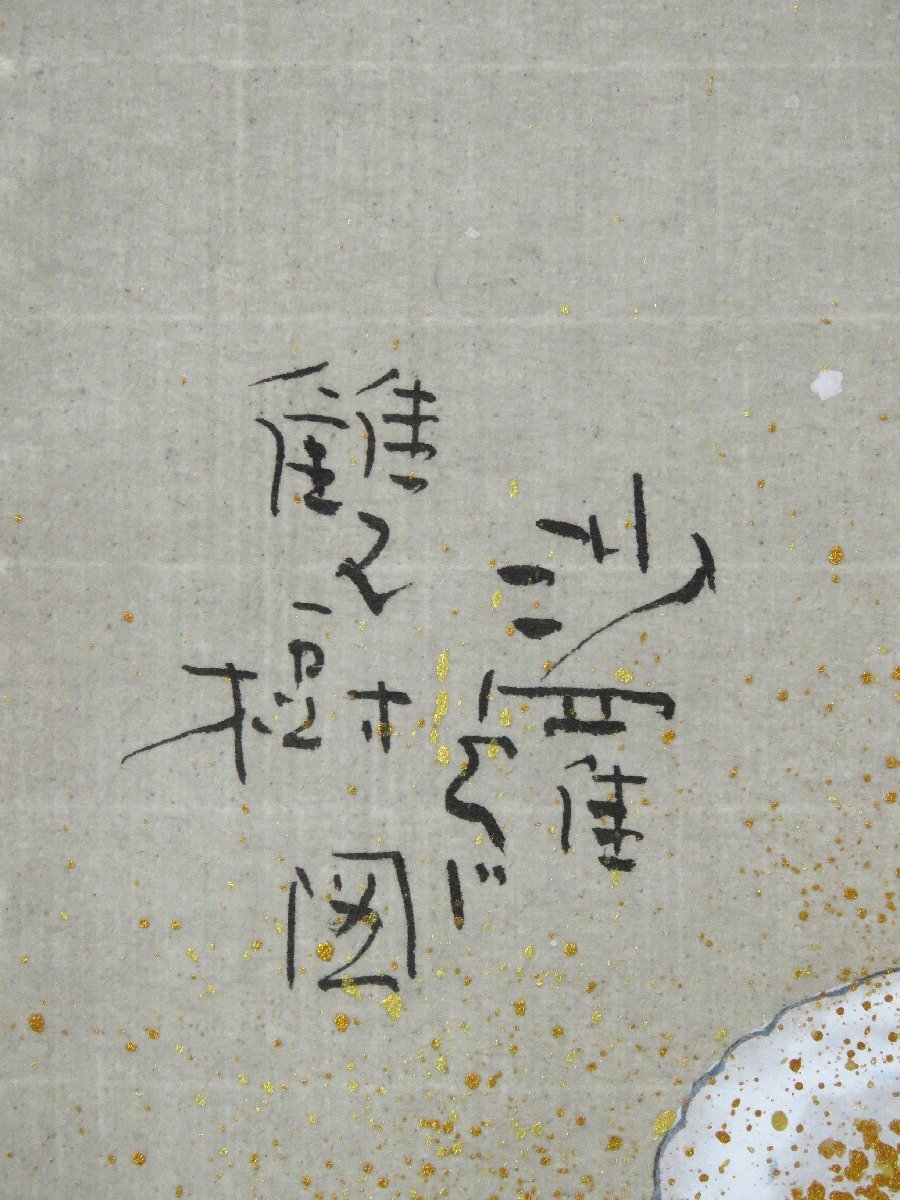 沙羅
雙樹図